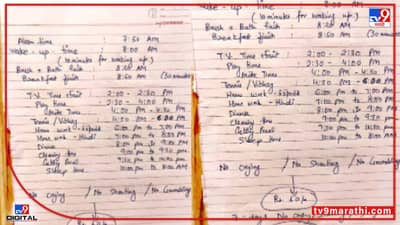 Alarm time 7:50 AM
Wake-up Time 8:00 AM
(10 minutes for waking up)
Brush + Bath 8:20 AM
Breakfast 8:50 AM (30 minutes)
T.V. Time + fruit 2:00 - 2:30 PM
Play time 2:30 - 4:00 PM
Time 4:00 PM - 4:30 PM
Tennis / 4:30 PM - 6:00 PM
Home work 6:00 PM to 7:00 PM
Home work - Hindi 7:00 PM to 8:00 PM
Dinner 8:00 PM to 9:00 PM
Cleaning 9:00 PM to 9:30 PM
9:30 PM to 10:00 PM
Sleep time 10:00 PM to 8:00 AM
No crying / No Shouting / No Grumbling
wake-up time 8:00 AM
(10 minutes for waking up)
Brush + Bath 8:20 AM
Breakfast 8:50 AM
T.V. Time + fruit 2:00 - 2:30 PM
Play time 2:30 - 4:00 PM
Time 4:00 PM - 4:30 PM
Tennis / 4:30 PM - 6:00 PM
Home work 6:00 PM to 7:00 PM
Home work - Hindi 7:00 PM to 8:00 PM
Dinner 8:00 PM to 9:00 PM
Cleaning 9:00 PM to 9:30 PM
9:30 PM to 10:00 PM
Sleep time 10:00 PM to 8:00 AM
No crying / No Shouting / No Grumbling
Rs 10/-
7 days No crying
TV9
मराठी
TV9
DIGITAL
tv9marathi.com